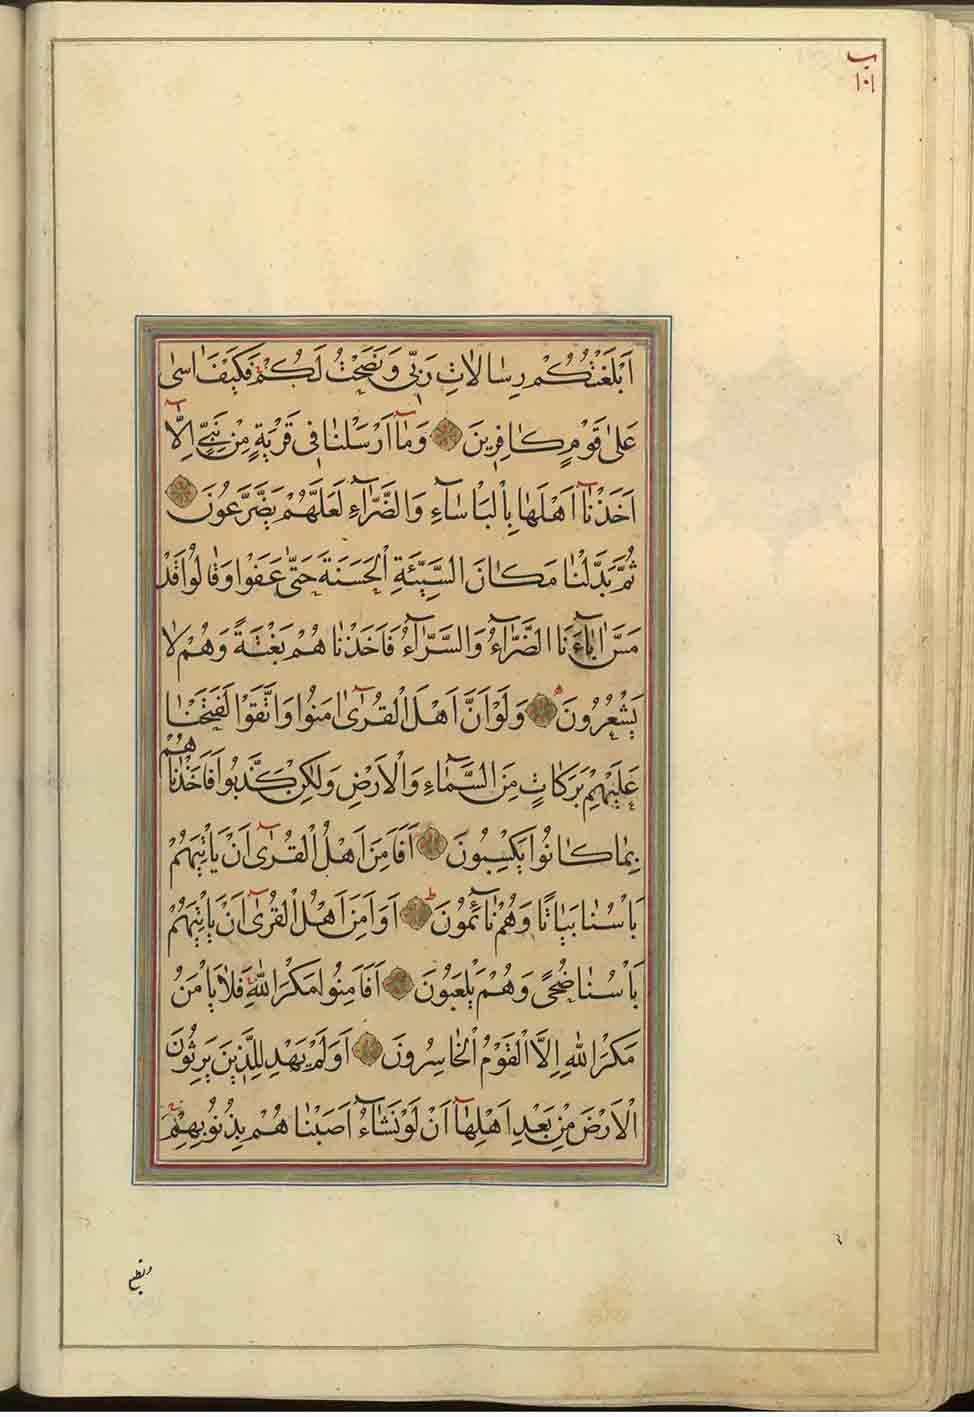 ب
١٠١
اَبْلَغْتُكُمْ رِسالاتِ رَبّى وَ نَصَحْتُ لَكُمْ فَكَيْفَ اسى
عَلى قَوْمٍ كافِرينَ وَ مآ اَرْسَلْنا فى قَرْيَةٍ مِنْ نَبِىٍّ اِلّا
اَخَذْنآ اَهْلَها بِالْبَاْسآءِ وَ الضَّرّآءِ لَعَلَّهُمْ يَضَّرَّعُونَ
ثُمَّ بَدَّلْنا مَكانَ السَّيِّئَةِ الْحَسَنَةَ حَتّى عَفَوْا وَ قالُوا قَدْ
مَسَّ ابآءَنَا الضَّرّآءُ وَ السَّرّآءُ فَاَخَذْنا هُمْ بَغْتَةً وَ هُمْ لا
يَشْعُرُونَ وَ لَوْ اَنَّ اَهْلَ الْقُرىٓ امَنُوا وَ اتَّقَوْا لَفَتَحْنا
عَلَيْهِمْ بَرَكاتٍ مِنَ السَّمآءِ وَ الْاَرْضِ وَ لكِنْ كَذَّبُوا فَاَخَذْنا هُمْ
بِما كانُوا يَكْسِبُونَ اَفَاَمِنَ اَهْلُ الْقُرىٓ اَنْ يَاْتِيَهُمْ
بَاْسُنا بَياتًا وَ هُمْ نآئِمُونَ اَوَ اَمِنَ اَهْلُ الْقُرىٓ اَنْ يَاْتِيَهُمْ
بَاْسُنا ضُحًى وَ هُمْ يَلْعَبُونَ اَفَاَمِنُوا مَكْرَ اللّهِ فَلا يَاْمَنُ
مَكْرَ اللّهِ اِلَّا الْقَوْمُ الْخاسِرُونَ اَوَ لَمْ يَهْدِ لِلَّذينَ يَرِثُونَ
الْاَرْضَ مِنْ بَعْدِ اَهْلِهآ اَنْ لَوْ نَشآءُ اَصَبْنا هُمْ بِذُنُوبِهِمْ
ونطبع